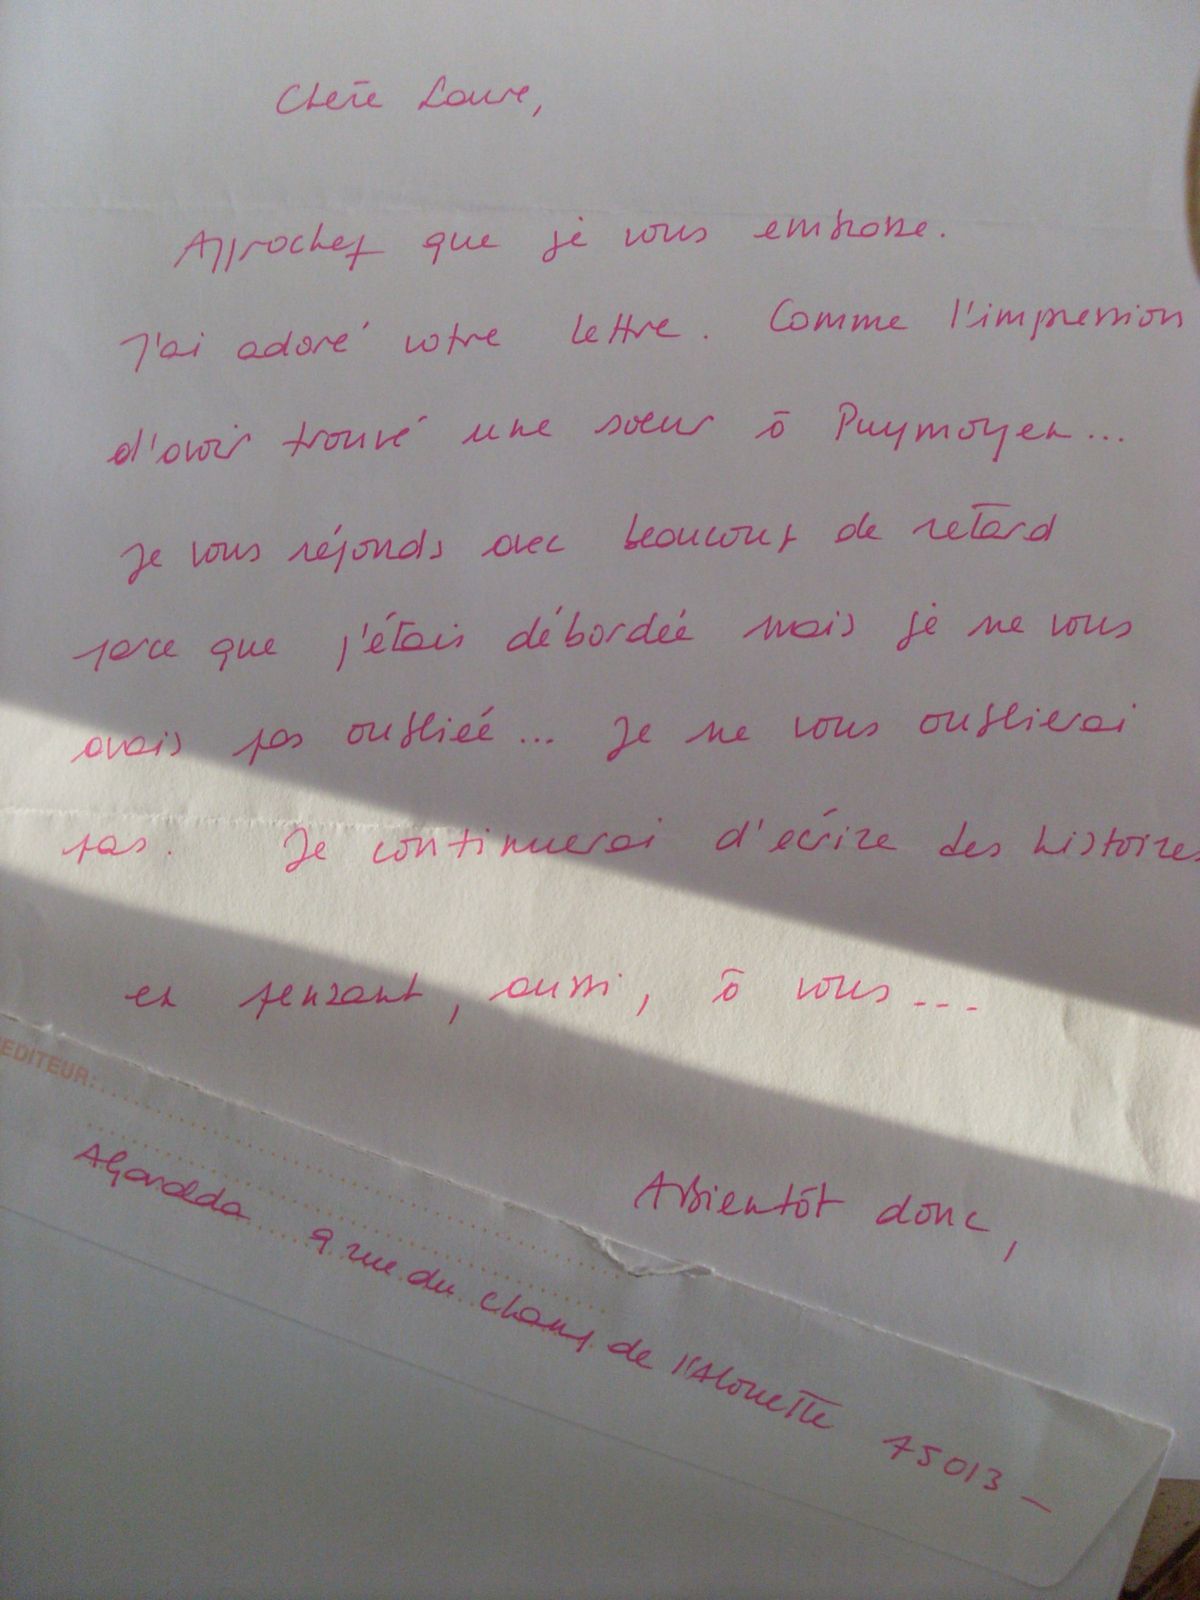 Chère Laure,
Approchez que je vous embrasse.
J'ai adoré votre lettre. Comme l'impression
d'avoir trouvé une soeur à Puymoyen...
Je vous réponds avec beaucoup de retard
parce que j'étais débordée mais je ne vous
avais pas oubliée... Je ne vous oublierai
pas. Je continuerai d'écrire des histoires
en pensant, aussi, à vous...
A bientôt donc,
EDITEUR:
AGavalda 9 rue du champ de l'Alouette 75013 -